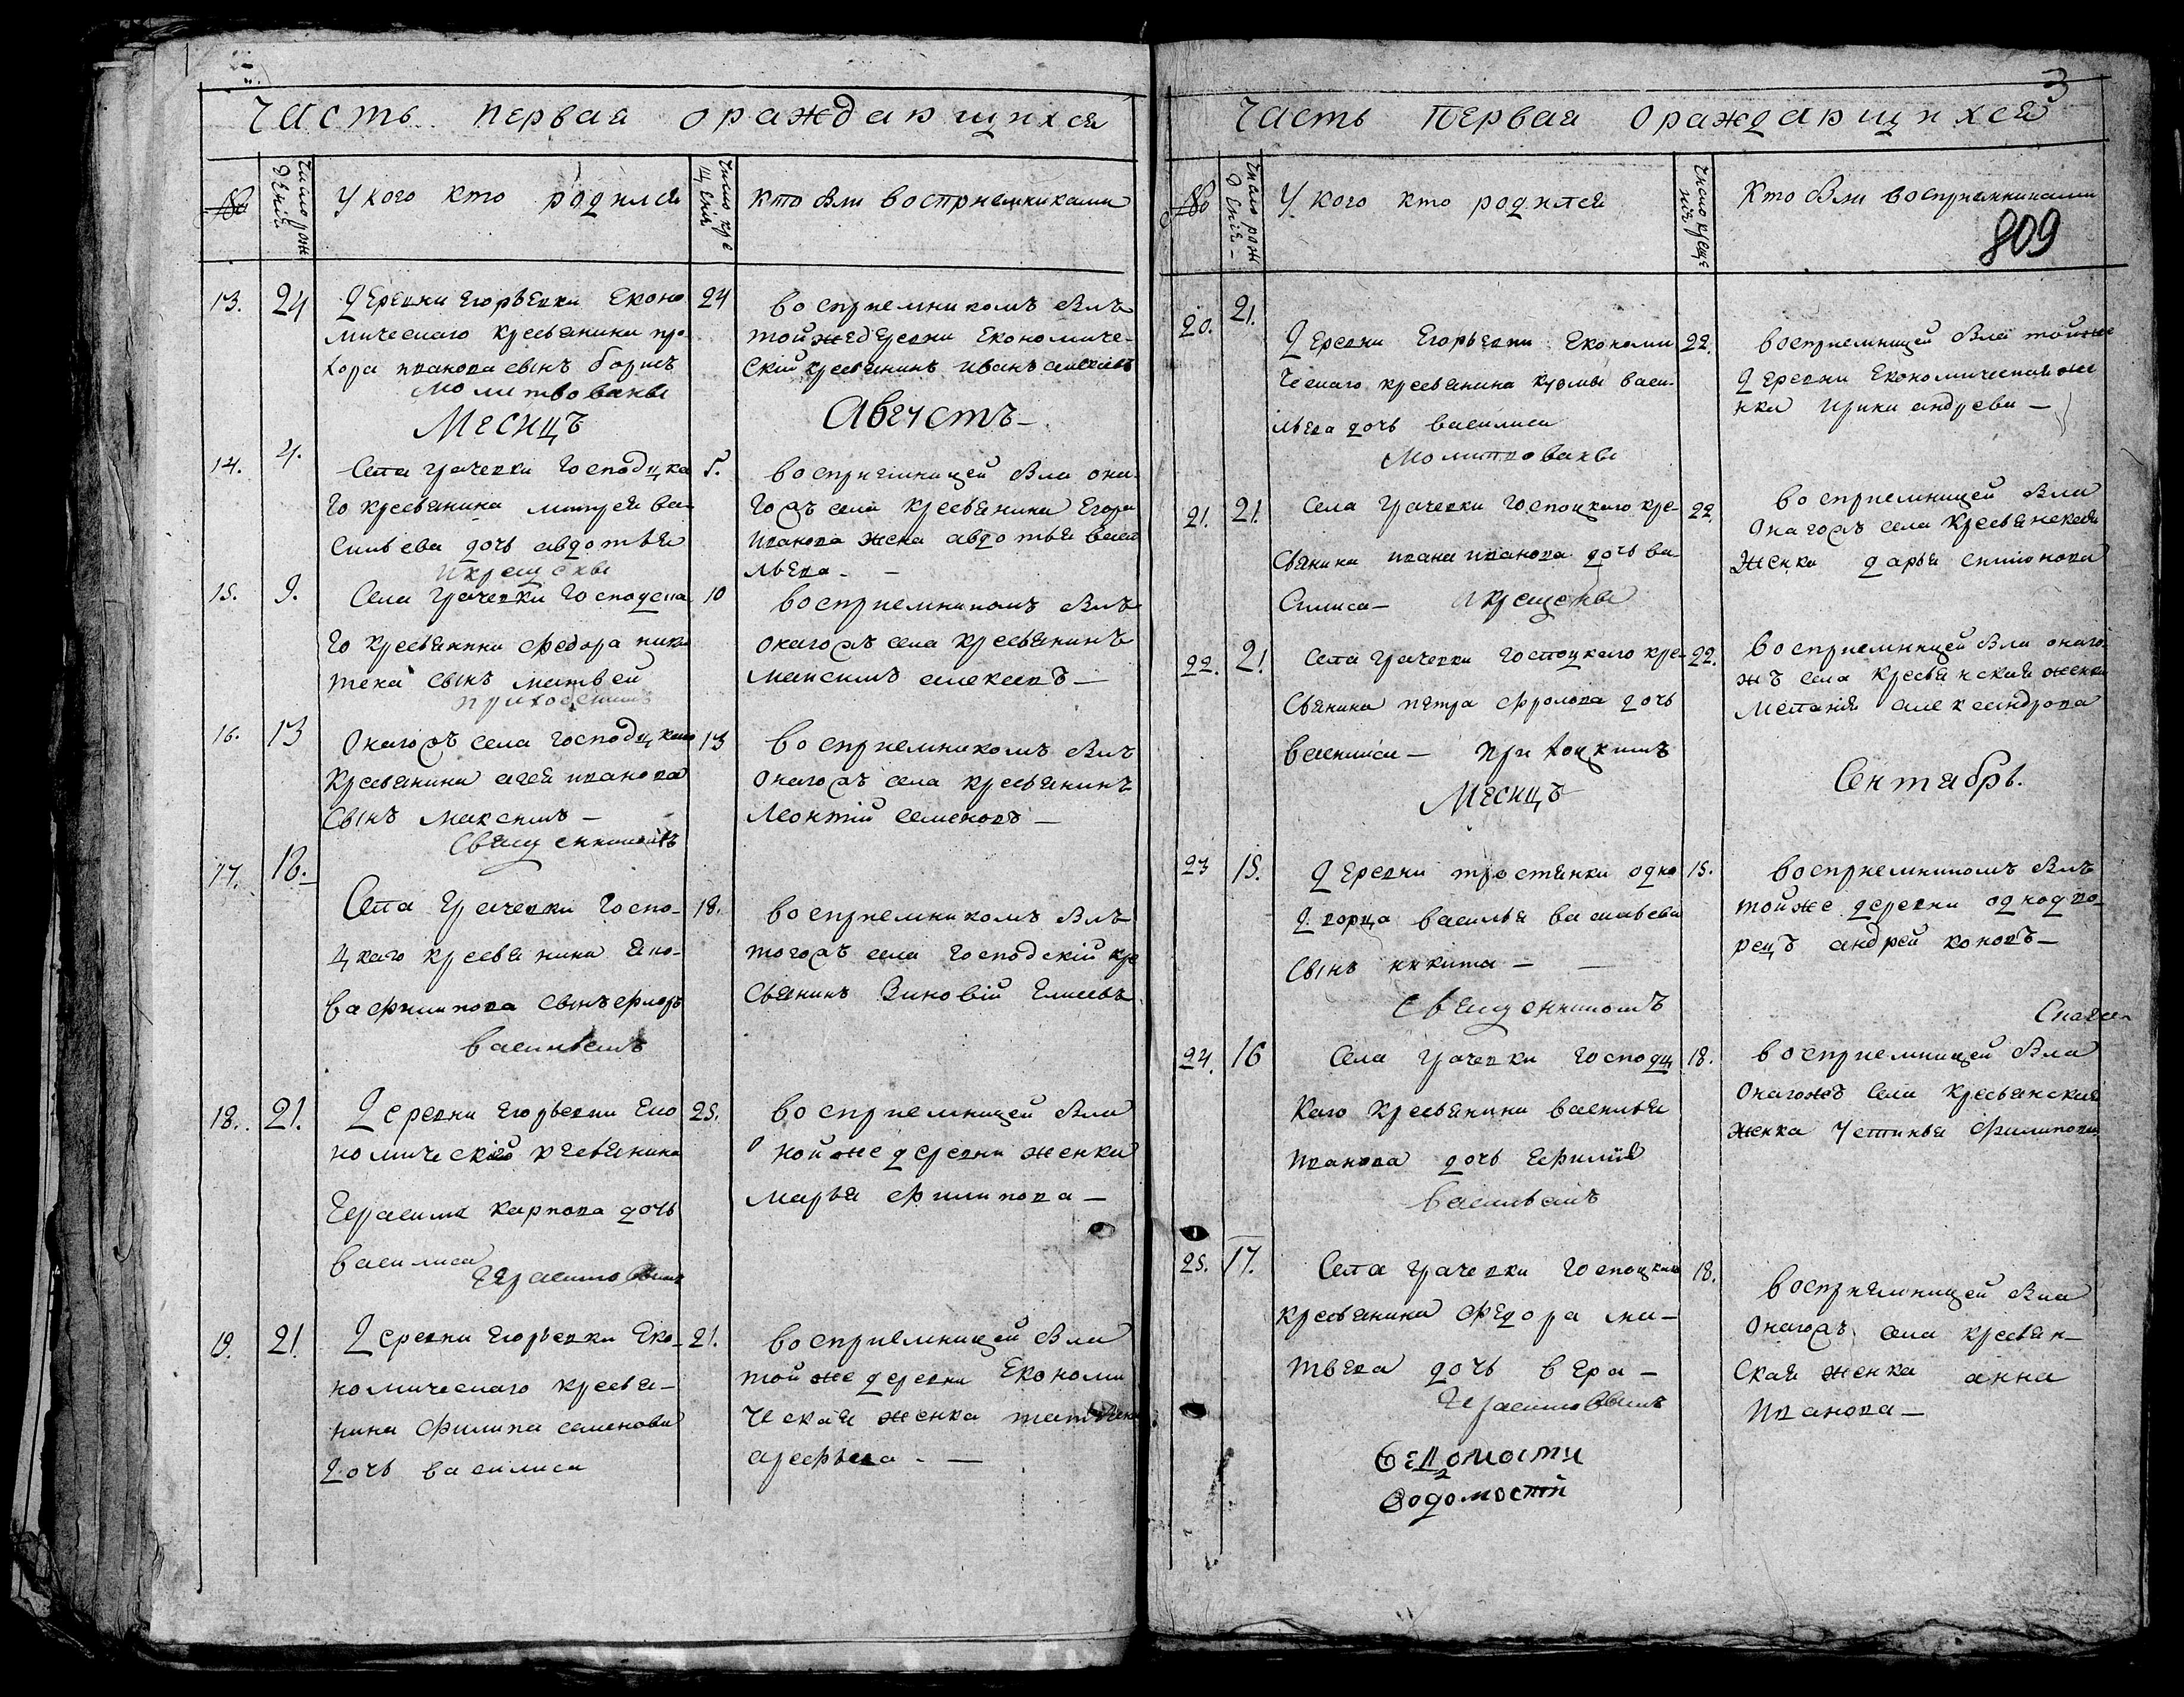 Часть первая ораждающихся
№
Число рож
дения
У кого кто родился
Число кре
щения
кто были восприемниками
13. 24 Деревни Егорьевки Еконо 24
мическаго кресьянина про
хора иванова сынъ борисъ
молитвованы
восприемникомъ былъ
тойже деревни Економиче-
скій кресьянинъ иванъ алексеевъ
Месицъ Августъ
14. 4. Села грачевки Господцка 5.
го кресьянина митрея ва
сильева дочь авдотья
икрещены
восприемницей была она
гожъ села кресьянина Егора
иванова жена авдотья васи
льева —
15. 9. Села грачевки Господска 10
го кресьянина Федора ники
тена сынъ матвей
приходскимъ
восприемникомъ былъ
онагожъ села кресьянинъ
максимъ алексеевъ —
16. 13 Онагожъ села господцкаго 13
кресьянина агея иванова
сынъ максимъ —
священникомъ
восприемникомъ былъ
онагожъ села кресьянинъ
леонтій семеновъ —
17. 18. Села грачевки Госпо- 18.
цкаго кресьянина яко-
ва филипова сынъ флоръ
васильемъ
восприемникомъ былъ
тогожъ села господскій кре
сьянинъ Зиновій Елисеевъ
18. 21. Деревни Егорьевки Еко 25.
номическаго кресьянина
Герасима карпова дочь
василиса
Герасимовымъ
восприемницей была
оной же деревни женка
марья филипова —
19. 21. Деревни Егорьевки Еко- 21.
номическаго кресья-
нина филипа семенова
дочь василиса
восприемницей была
той же деревни Економи
ческая женка татьяна
арефьева —
3
Часть Первая Ораждающихся
№
Число рож
дения
У кого кто родился
Число креще
нія
Кто были восприемниками
809
20. 21. Деревни Егорьевки Економи 22.
ческаго кресьянина кузмы васи-
льева дочь василиса
молитвованы
восприемницей была тойже
деревни Економическая же
нка ирина андреева —
21. 21. Села грачевки Госпоцкаго кре- 22.
сьянина ивана иванова дочь ва
силиса — икрещены
восприемницей была
онагожъ села кресьянская
женка дарья симіонова
22. 21 Села грачевки госпоцкаго кре- 22.
сьянина петра фролова дочь
василиса — приходцкимъ
восприемницей была онаго
жъ села кресьянская женка
меланія александрова
Месицъ Сентябрь.
23 15. Деревни тростянки одно 15.
дворца василья васильева
сынъ никита —
священникомъ
восприемникомъ былъ
тойже деревни однодво-
рецъ андрей коновъ —
24. 16 Села грачевки господц 18.
каго кресьянина василья
иванова дочь ефимія
васильемъ
восприемницей была
онагожъ села кресьянская
женка устинья филипова
25. 17. Села грачевки Госпоцкаго 18.
кресьянина Федора ма-
твева дочь вера —
Герасимовымъ
восприемницей была
онагожъ села кресьян-
ская женка анна
иванова —